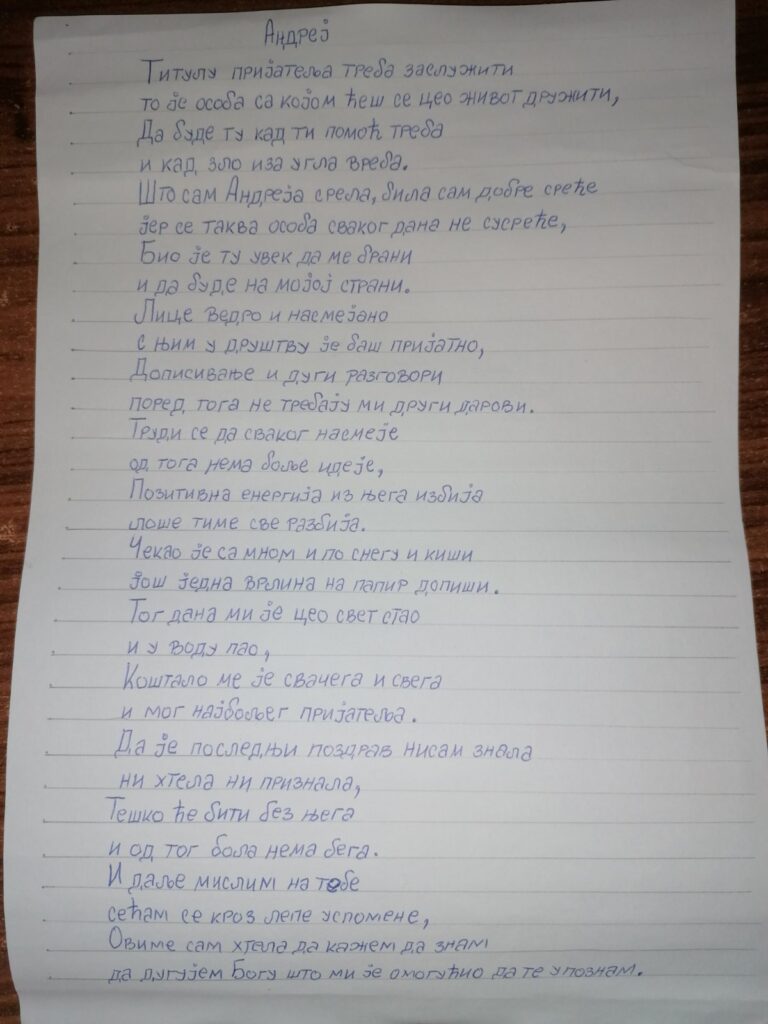 Андреј
Титулу пријатеља треба заслужити
то је особа са којом ћеш се цео живот дружити,
Да буде ту кад ти помоћ треба
и кад зло иза угла вреба.
Што сам Андреја срела, била сам добре среће
јер се таква особа сваког дана не сусреће,
Био је ту увек да ме брани
и да буде на мојој страни.
Лице ведро и насмејано
с њим у друштву је баш пријатно,
Дописивање и дуги разговори
поред тога не требају ми други дарови.
Труди се да сваког насмеје
од тога нема боље идеје,
Позитивна енергија из њега избија
лоше тиме све разбија.
Чекао је са мном и по снегу и киши
још једна врлина на папир допиши.
Тог дана ми је цео свет стао
и у воду пао,
Коштало ме је свачега и свега
и мог најбољег пријатеља.
Да је последњи поздрав нисам знала
ни хтела ни признала,
Тешко ће бити без њега
и од тог бола нема бега.
И даље мислим на тебе
сећам се кроз лепе успомене,
Овиме сам хтела да кажем да знам
да дугујем Богу што ми је омогућио да те упознам.